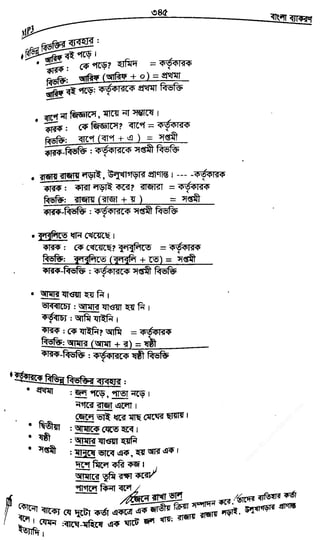 ৩৪৫
বাংলা ব্যাকরণ
MP3
* বিভিন্ন বিভক্তির ব্যবহার :
* হামিদ বই পড়ে।
কারক : কে পড়ে? হামিদ = কর্তৃকারকে
বিভক্তি: হামিদ (হামিদ + ০) = প্রথমা
হামিদ বই পড়ে: কর্তৃকারকে প্রথমা বিভক্তি
* বাপে না জিজ্ঞাসে, মায়ে না সম্ভাষে।
কারক : কে জিজ্ঞাসে? বাপে = কর্তৃকারকে
বিভক্তি: বাপে (বাপ + এ) = সপ্তমী
কারক-বিভক্তি : কর্তৃকারকে সপ্তমী বিভক্তি
* রাজায় রাজায় লড়াই, উলুখাগড়ার প্রাণান্ত। --- -কর্তৃকারকে
কারক : কারা লড়াই করে? রাজারা = কর্তৃকারকে
বিভক্তি: রাজায় (রাজা + য়) = সপ্তমী
কারক-বিভক্তি : কর্তৃকারকে সপ্তমী বিভক্তি
* বুলবুলিতে ধান খেয়েছে।
কারক : কে খেয়েছে? বুলবুলিতে = কর্তৃকারকে
বিভক্তি: বুলবুলিতে (বুলবুলি + তে) = সপ্তমী
কারক-বিভক্তি : কর্তৃকারকে সপ্তমী বিভক্তি
* আমার যাওয়া হয় নি।
ভাববাচ্য : আমার যাওয়া হয় নি।
কর্তৃবাচ্য : আমি যাইনি।
কারক : কে যাইনি? আমি = কর্তৃকারকে
বিভক্তি: আমার (আমা + র) = ষষ্ঠী
কারক-বিভক্তি : কর্তৃকারকে ষষ্ঠী বিভক্তি
* কর্তৃকারকে বিভিন্ন বিভক্তির ব্যবহার :
* প্রথমা : জল পড়ে, পাতা নড়ে।
নগরে রাজা এলো।
জেলে ভাই ধরে মাছ মেঘের ছায়ায়।
* দ্বিতীয়া : আমাকে যেতে হবে।
* ষষ্ঠী : আমার যাওয়া হয়নি
* সপ্তমী : মানুষে ভাবে এক, হয় আর এক।
দশে মিলে করি কাজ।
পাগলে কিনা বলে
কোনো বাক্যে যে দুটো কর্তা একত্রে এক জাতীয় ক্রিয়া সম্পাদন করে, তাদের ব্যতিহার কর্তা
বলে। যেমন :বাঘে-মহিষে এক ঘাটে জল খায়; রাজায় রাজায় লড়াই, উলুখাগড়ার প্রাণান্ত
ইত্যাদি।